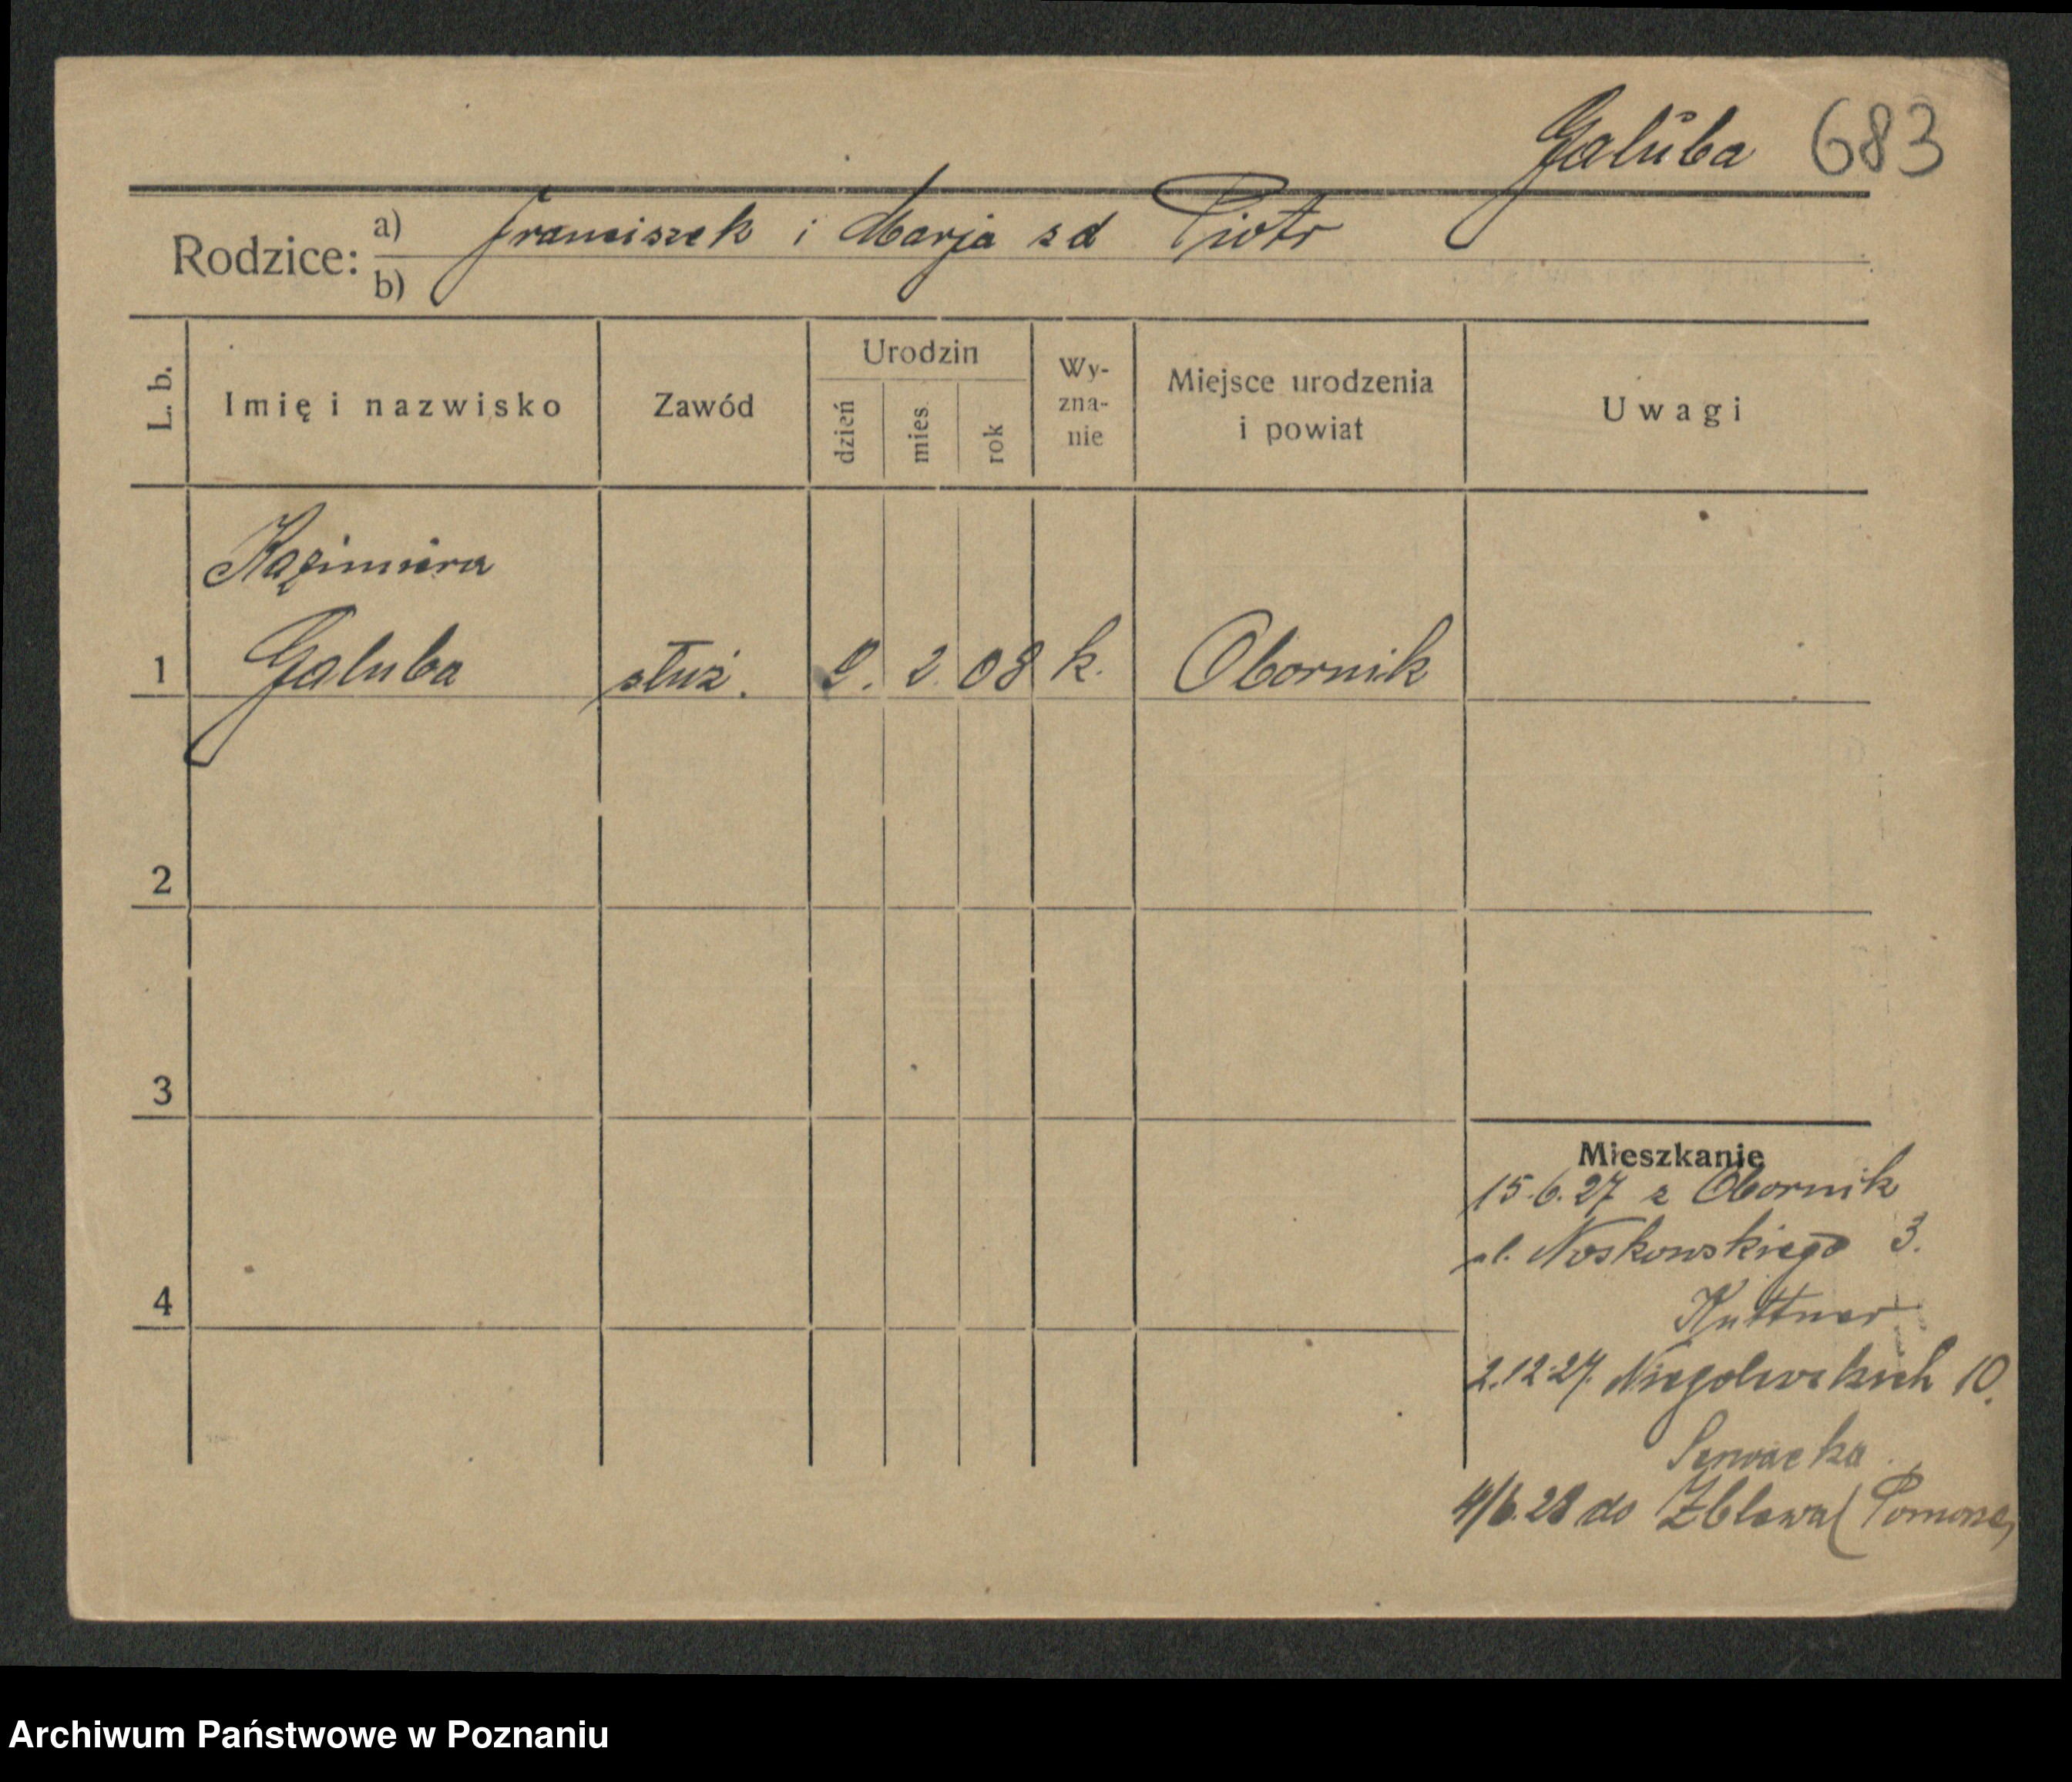 Galuba 683
Rodzice: a) Franciszek i Marja z d Piotr
b)
L. b. Imię i nazwisko Zawód Urodzin dzień mies. rok Wy-zna-nie Miejsce urodzenia i powiat Uwagi
Kazimiera
1 Galuba służ. 9. 2. 08 k. Obornik
2
3
4
Mieszkanie
15.6.27 z Obornik
ul. Noskowskiego 3.
Kuttner
2.12.27. Niegolewskich 10.
4/6.28 do Zblewa (Pomorze)
Archiwum Państwowe w Poznaniu